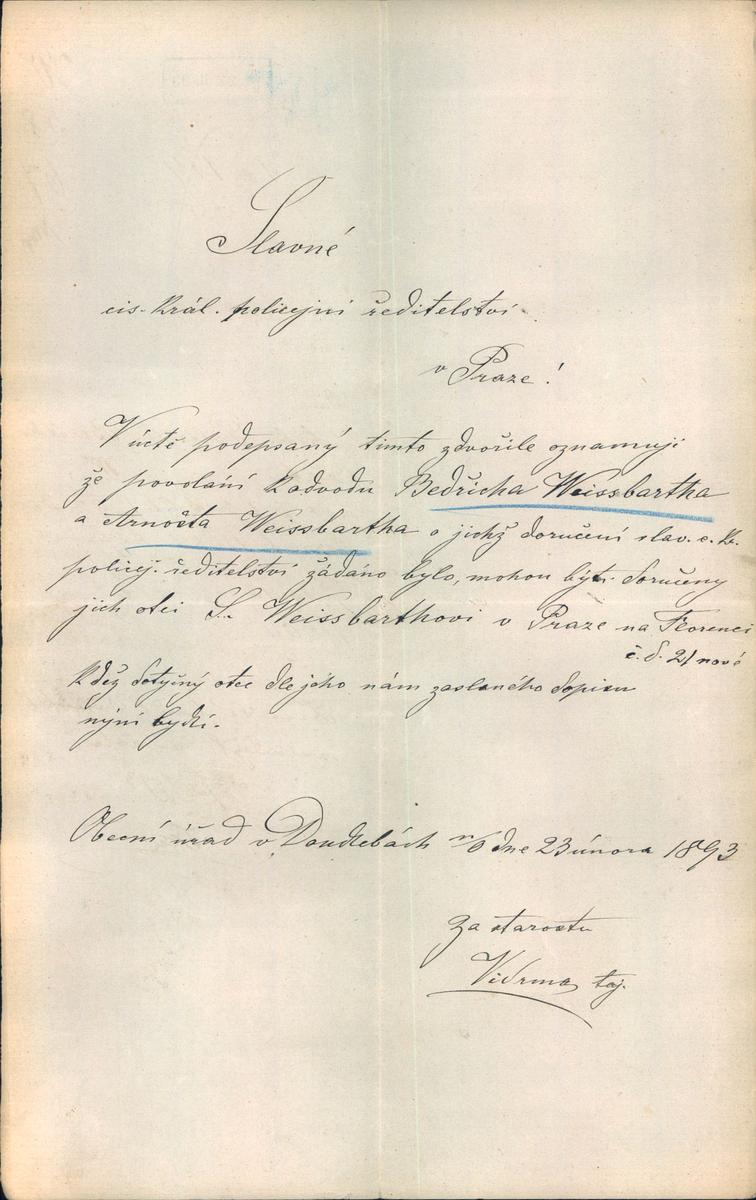 Slavné
cis. král. policejní ředitelství
v Praze!
V úctě podepsaný tímto zdvořile oznamuji
že povolání k odvodu Bedřicha Weissbartha
a Arnošta Weissbartha o jichž doručení slav. c. kr.
policej. ředitelství žádáno bylo, mohou býti doručeny
jich otci S. Weissbarthovi v Praze na Florenci
č. d. 21 nové
kdež dotyčný otec dle jeho nám zaslaného dopisu
nyní bydlí.
Obecní úřad v Doudlebách n/O dne 23 února 1893
Za starostu
Vidrma taj.